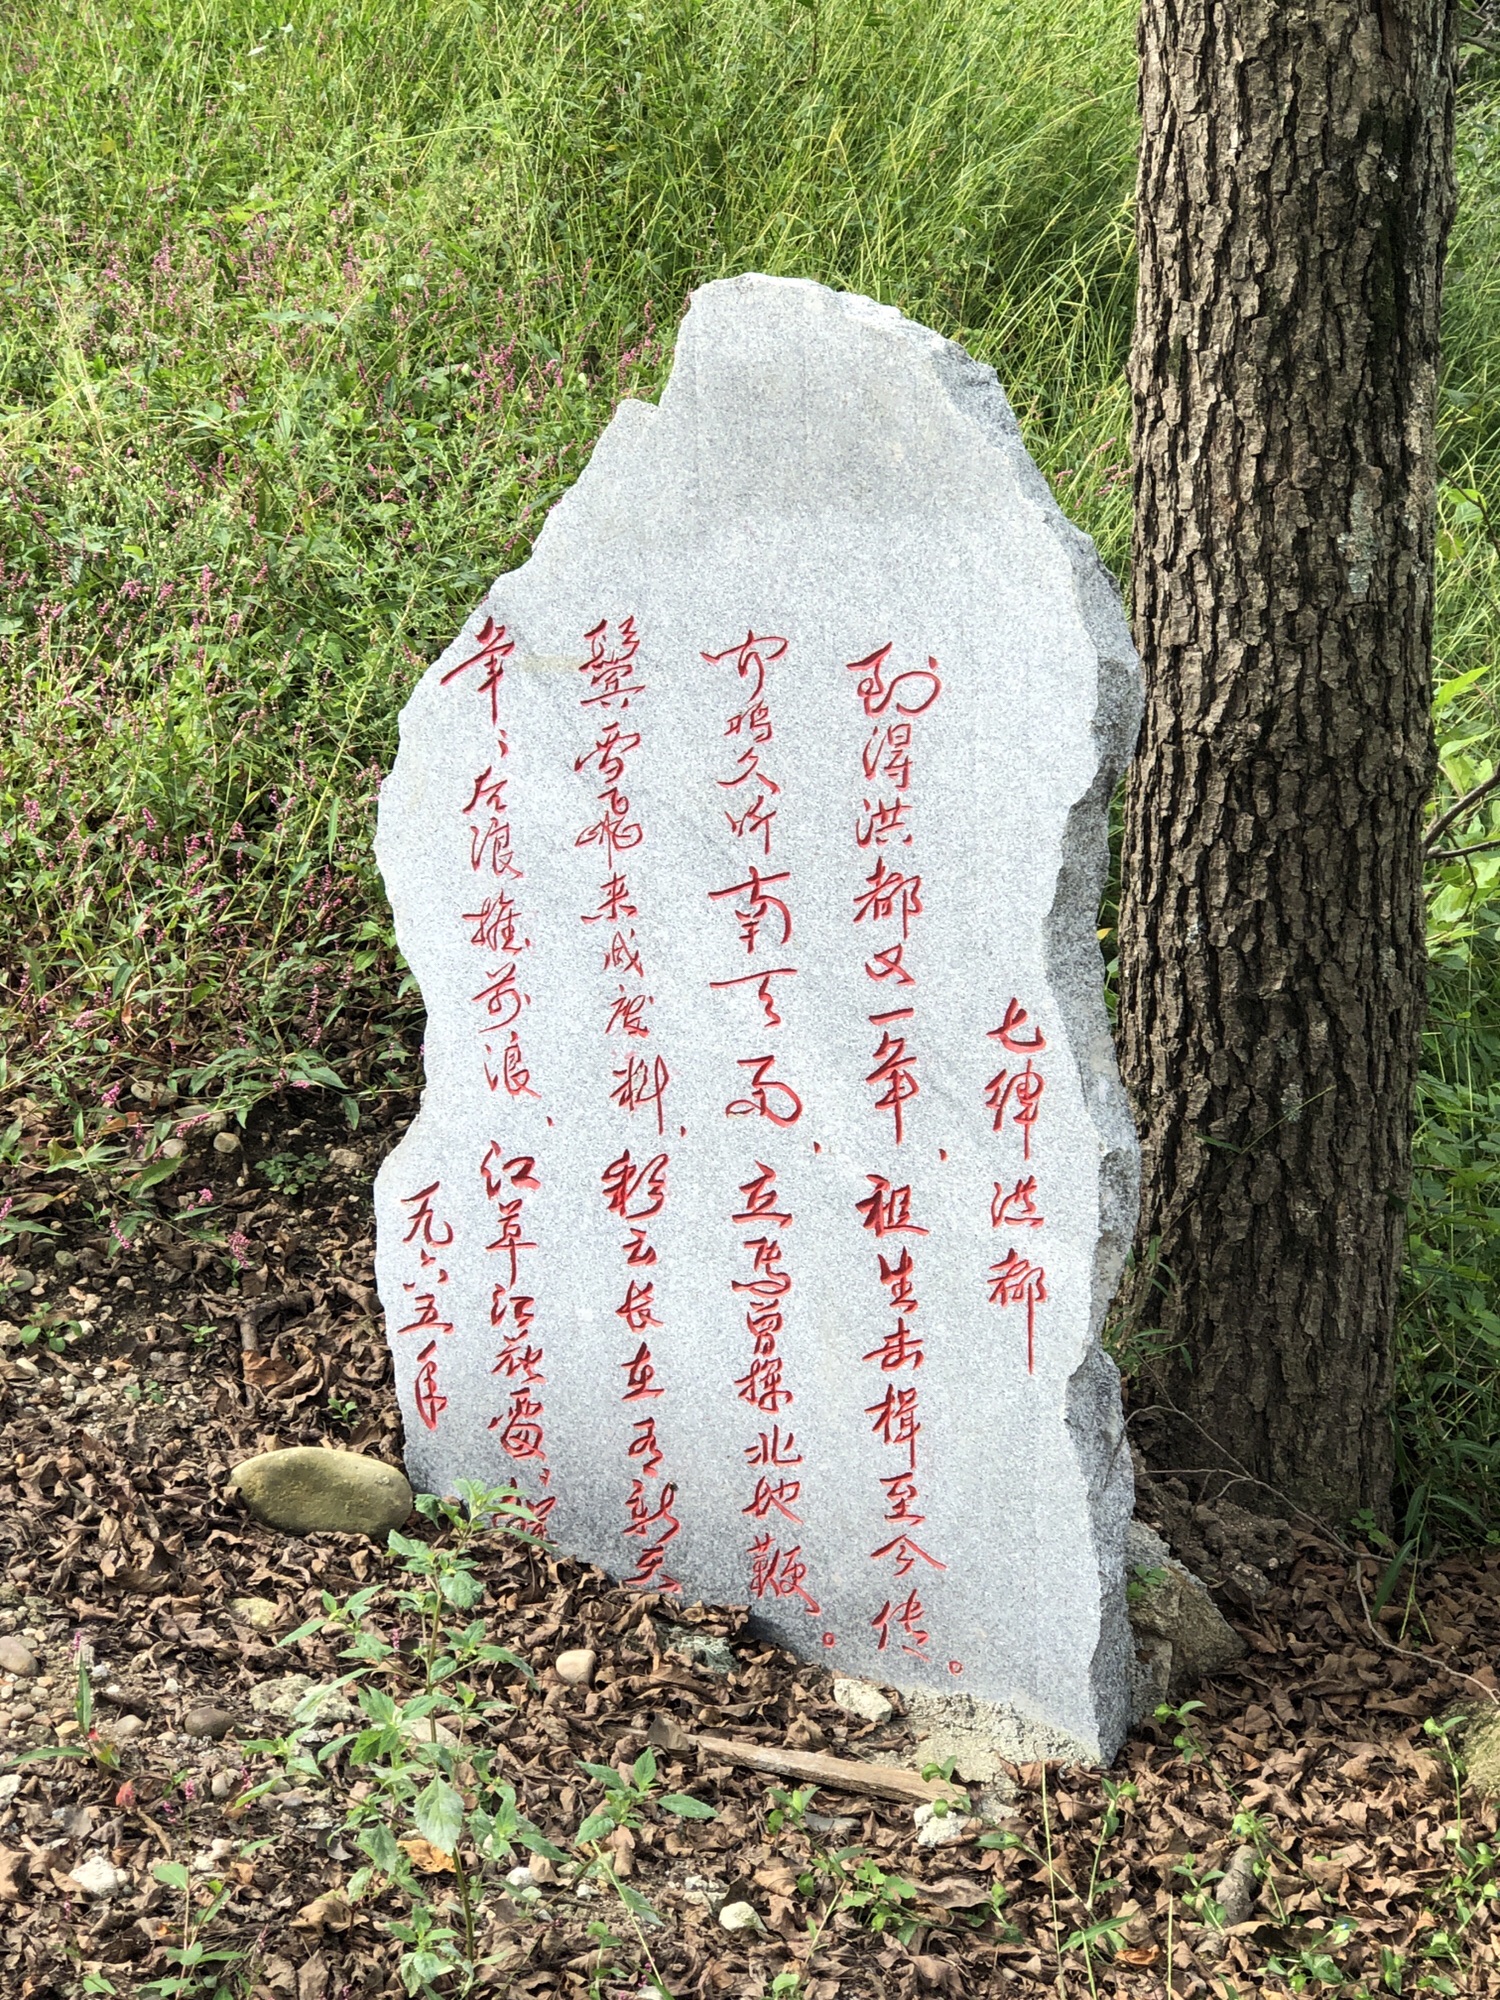 七律 洪都
到得洪都又一年，祖生击楫至今传。
闻鸡久听南天雨，立马曾挥北地鞭。
鬓雪飞来成废料，彩云长在有新天
年々后浪推前浪，江草江花处々鲜
一九六五年